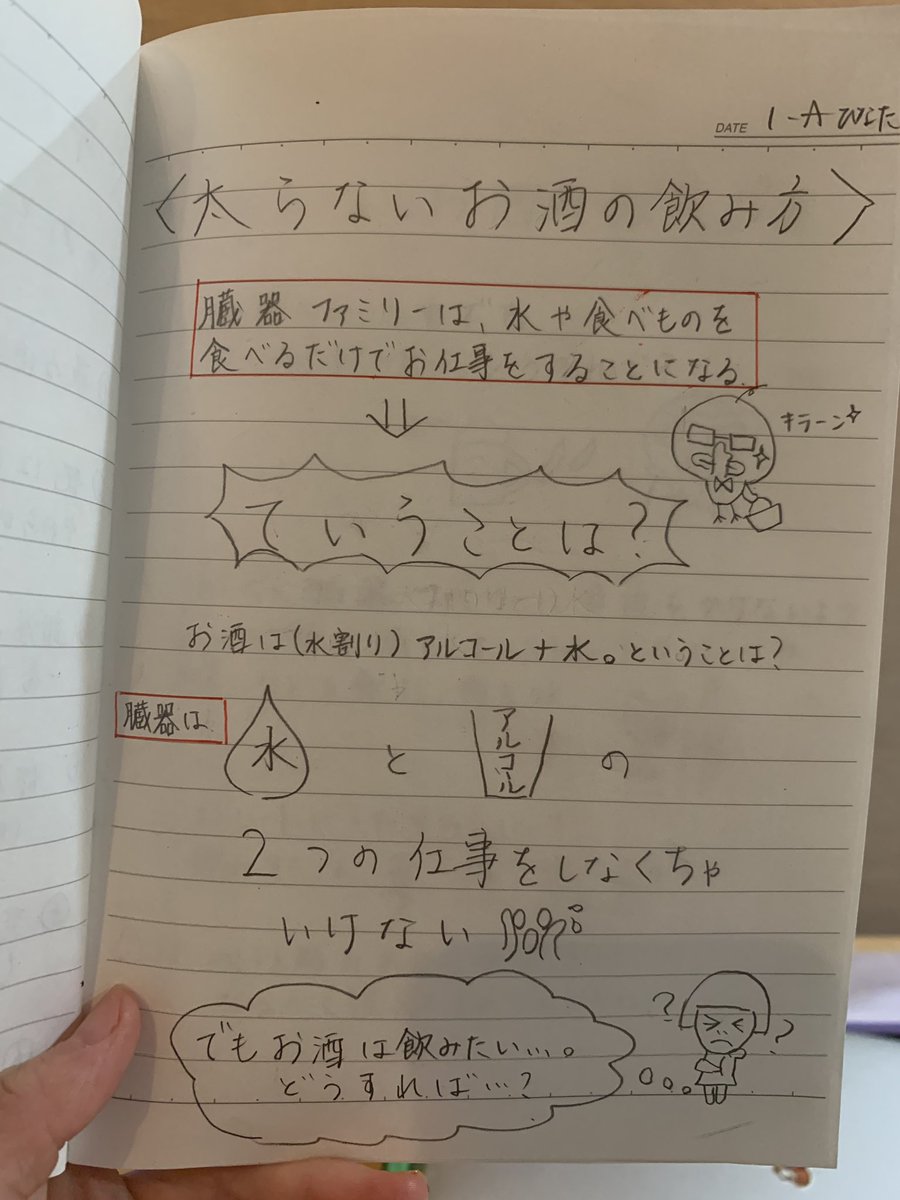 DATE 1-A ひなた
〈太らないお酒の飲み方〉
臓器ファミリーは、水や食べものを
食べるだけでお仕事をすることになる
キラーン
ていうことは？
お酒は(水割り)アルコール+水。ということは？
臓器は 水 と アルコール の
2つの仕事をしなくちゃ
いけない
でもお酒は飲みたい…。
どうすれば…？
? ?